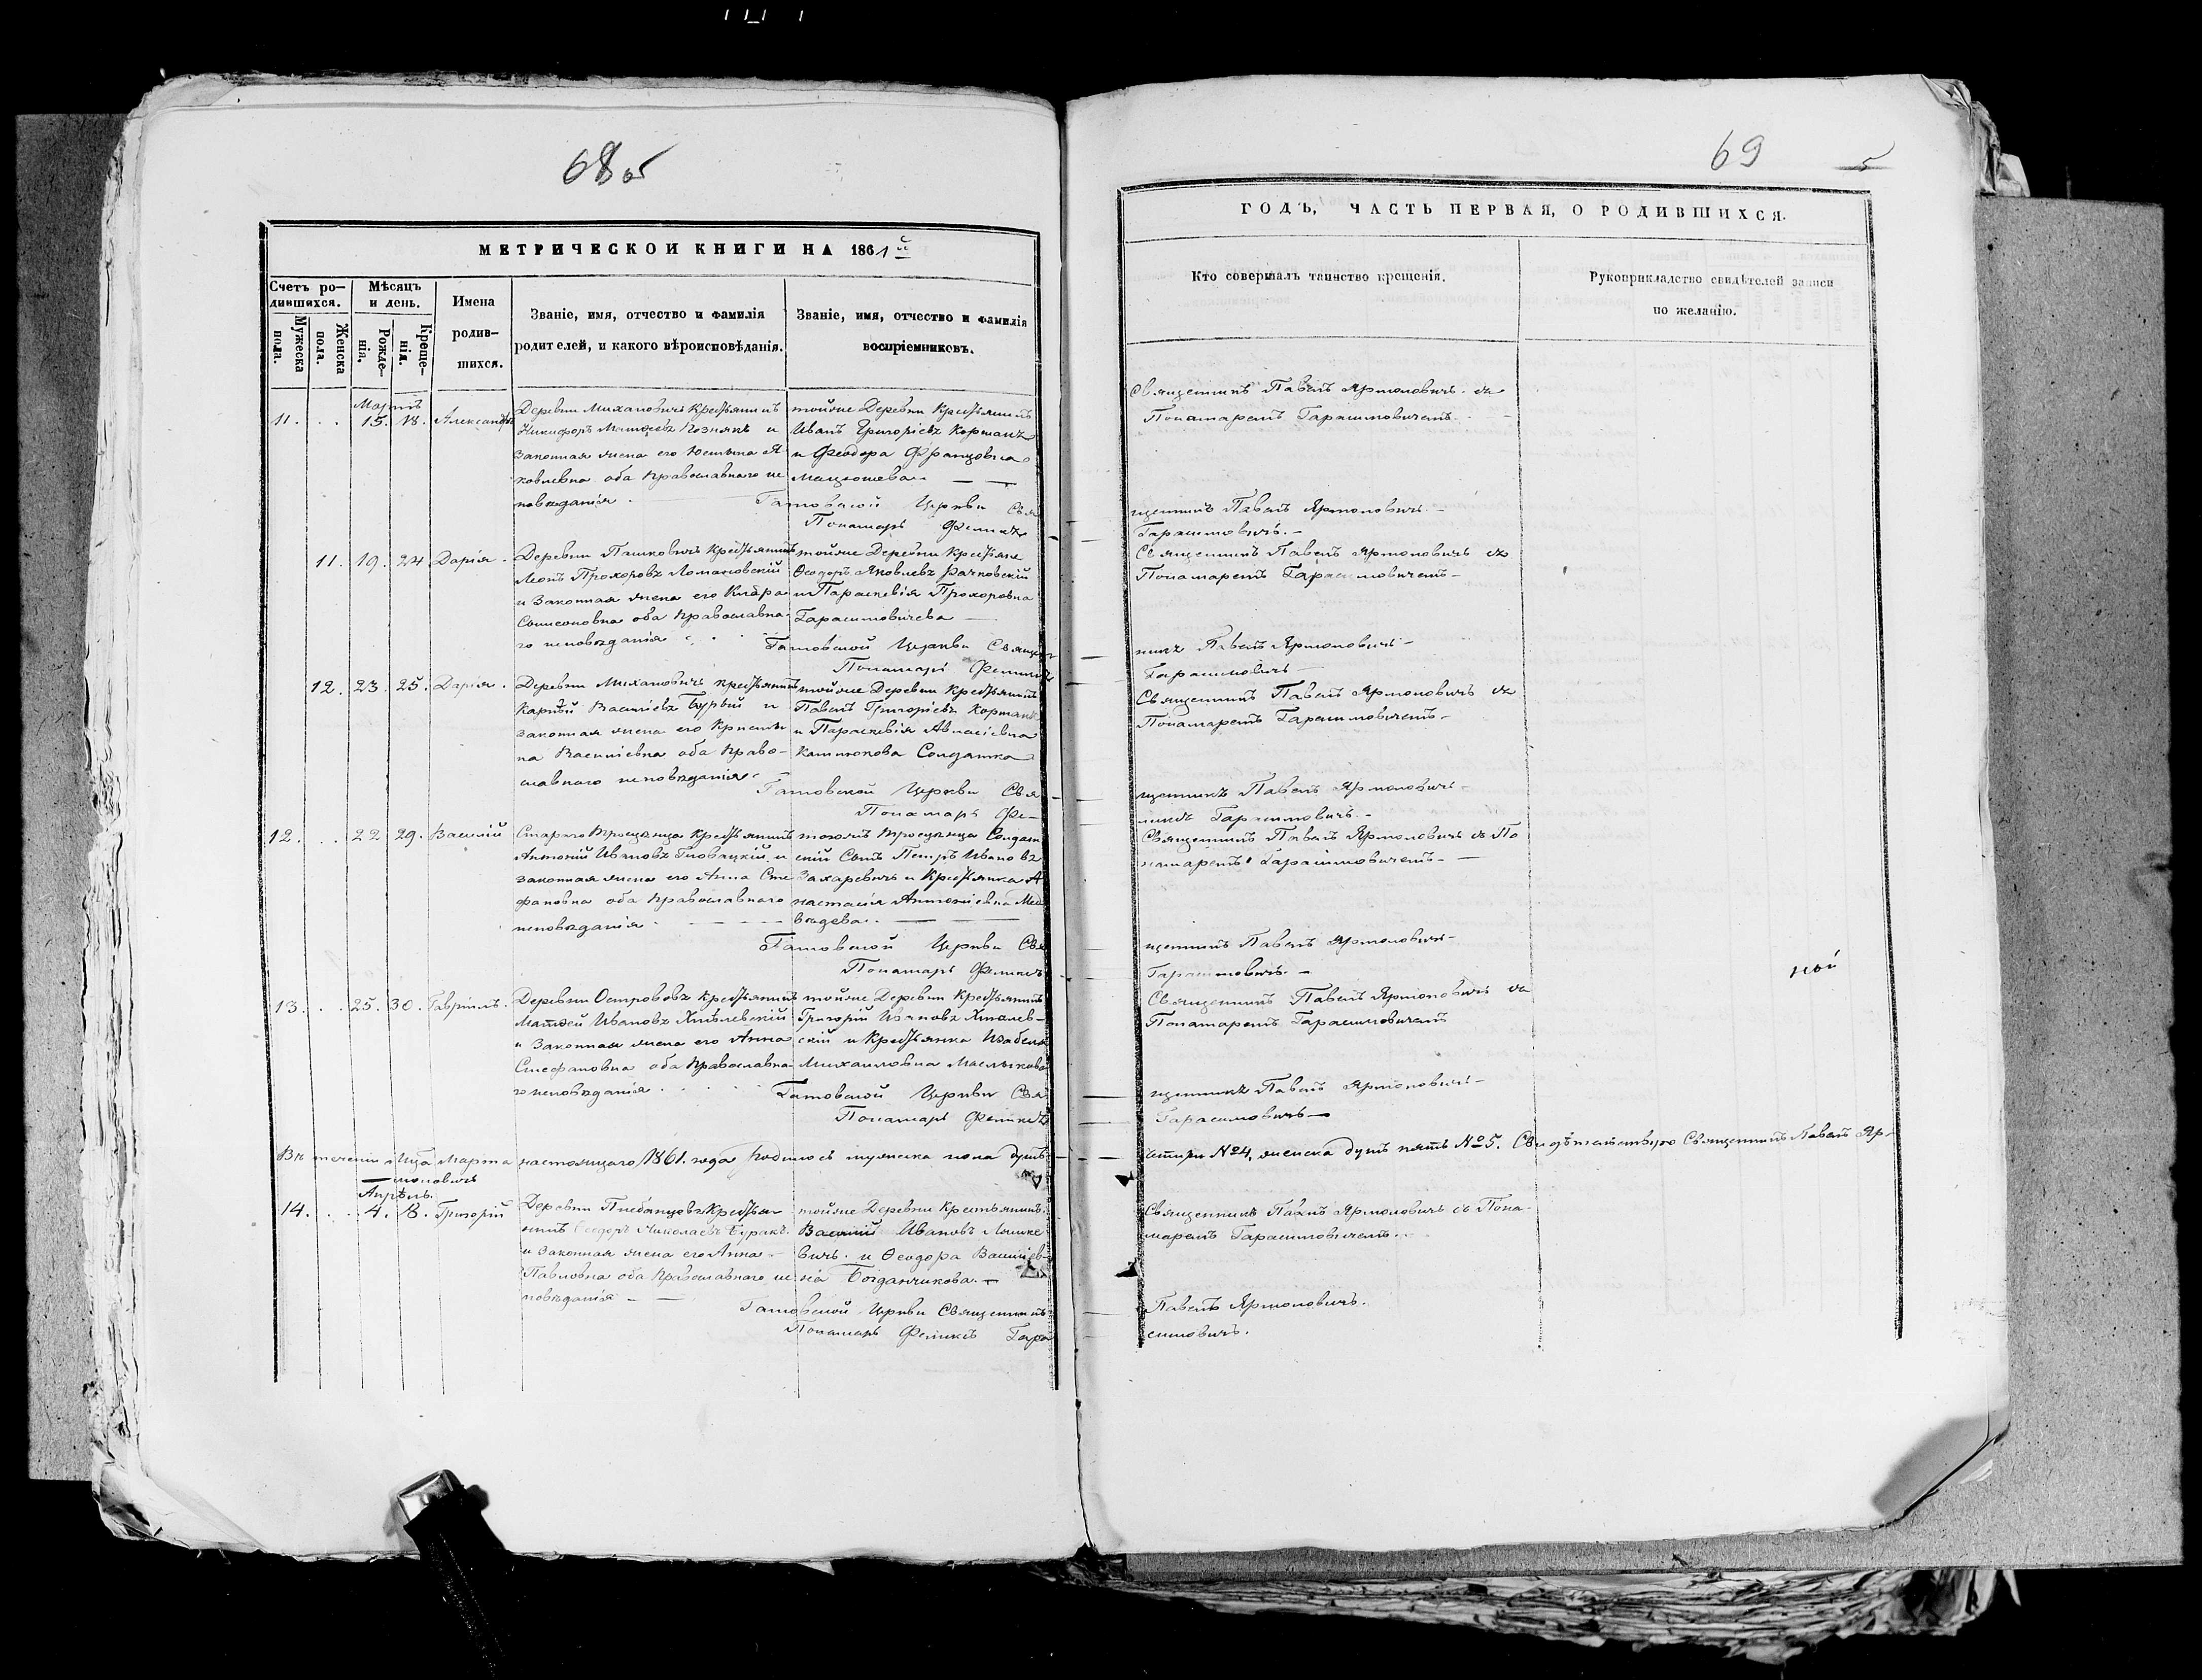 68 об
МЕТРИЧЕСКОЙ КНИГИ НА 1861й
Счетъ ро-
дившихся.
Мужеска
пола.
Женска
пола.
Мѣсяцъ
и день.
Рожде-
нія.
Креще-
нія.
Имена
родив-
шихся.
Званіе, имя, отчество и фамилія
родителей, и какого вѣроисповѣданія.
Званіе, имя, отчество и фамилія
воспріемниковъ.
Мартъ
11. 15. 18. Александръ
Деревни Михановичъ Крестьянинъ
Никифоръ Матѳеевъ Познякъ и
Законная жена его Юстина Я
ковлевна оба Православнаго ис
повѣданія.
тойже Деревни Крестьянинъ
Иванъ Григоріевъ Коржанъ
и Феодора Францовна
Мацюшева.
Гатовской Церкви Свя
Понамарь Феликсъ
11. 19. 24 Дарія.
Деревни Пашковичъ Крестьянинъ
Леонъ Прохоровъ Ломановскій
и Законная жена его Клара
Самсоновна оба Православна-
го исповѣданія
тойже Деревни Крестьяне
Ѳеодоръ Яковлевъ Рачковскій
и Параскевія Прохоровна
Гарасимовичева
Гатовской Церкви Священ
Понамарь Феликсъ
12. 23. 25. Дарія.
Деревни Михановичъ Крестьянинъ
Карпъ Васильевъ Бурый и
законная жена его Кристи
на Васильевна оба Право-
славнаго исповѣданія.
тойже Деревни Крестьянинъ
Павелъ Григоріевъ Коржанъ
и Параскевія Аѳанасіевна
Солдатка
Гатовской Церкви Свя
Понамарь Фе-
12. 22 29. Василій
Стараго Тростянца Крестьянинъ
Антоній Ивановъ Гловацкій и
законная жена его Анна Сте
фановна оба Православнаго
исповѣданія.
тогожъ Тростянца Солдат
скій Сынъ Петръ Ивановъ
Захаревичъ и Крестьянка А
настасія Антоніевна Мед
вѣдева.
Гатовской Церкви Свя
Понамарь Феликсъ
13. 25. 30. Гавріилъ.
Деревни Острововъ Крестьянинъ
Матѳей Ивановъ Хмѣлевскій
и Законная жена его Анна
Стефановна оба Православна-
го исповѣданія.
тойже Деревни Крестьянинъ
Григорій Ивановъ Хмѣлев-
скій и Крестьянка Изабела
Михаиловна Маслыкова
Гатовской Церкви Свя
Понамарь Феликсъ
Въ теченіи м-ца Марта настоящаго 1861. года родилось мужеска пола душъ
моловичъ
Апрѣль.
14. 4. 8. Григорій
Деревни Плебанцевъ Крестья-
нинъ Ѳеодоръ Николаевъ Буракъ
и Законная жена его Анна
Павловна оба Православнаго ис
повѣданія
тойже Деревни Крестьянинъ
Василій Ивановъ Ляшке
вичъ. и Ѳеодора Василіев-
на Богданчикова.
Гатовской Церкви Священникъ
Понамарь Феликсъ Гара
69
5
ГОДЪ, ЧАСТЬ ПЕРВАЯ, О РОДИВШИХСЯ.
Кто совершалъ таинство крещенія.
Рукоприкладство свидѣтелей записи
по желанію.
Священникъ Павелъ Ярмоловичъ съ
Понамаремъ Гарасимовичемъ.
щенникъ Павелъ Ярмоловичъ.
Гарасимовичъ.
Священникъ Павелъ Ярмоловичъ съ
Понамаремъ Гарасимовичемъ
никъ Павелъ Ярмоловичъ
Гарасимовичъ
Священникъ Павелъ Ярмоловичъ съ
Понамаремъ Гарасимовичемъ
щенникъ Павелъ Ярмоловичъ
ликсъ Гарасимовичъ.
Священникъ Павелъ Ярмоловичъ съ По
намаремъ Гарасимовичемъ
щенникъ Павелъ Ярмоловичъ
Гарасимовичъ.
ной
Священникъ Павелъ Ярмоловичъ съ
Понамаремъ Гарасимовичемъ
щенникъ Павелъ Ярмоловичъ
Гарасимовичъ
четыре №4, женска душъ пять №5. Свидѣтельствую Священникъ Павелъ Яр-
Священникъ Павелъ Ярмоловичъ съ Пона-
маремъ Гарасимовичемъ.
Павелъ Ярмоловичъ.
симовичъ.